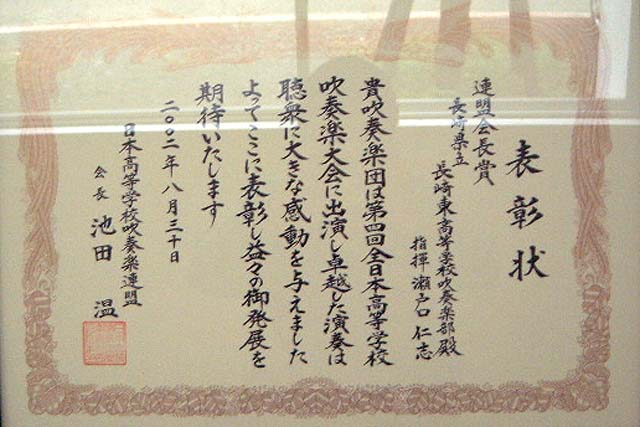 表彰状
連盟会長賞
長崎県立
長崎東高等学校吹奏楽部殿
指揮 瀬戸口 仁志
貴吹奏楽団は第四回全日本高等学校
吹奏楽大会に出演し卓越した演奏は
聴衆に大きな感動を与えました
よってここに表彰し益々の御発展を
期待いたします
二〇〇二年八月三十日
日本高等学校吹奏楽連盟
会長 池田 温